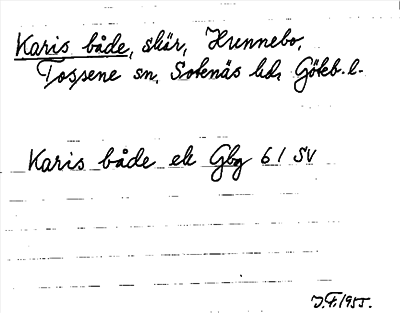 Karis både, skär, Hunnebo,
Tossene sn. Sotenäs hd. Göteb. l.
Karis både ek Gbg 61 SV
J.F. 1955.